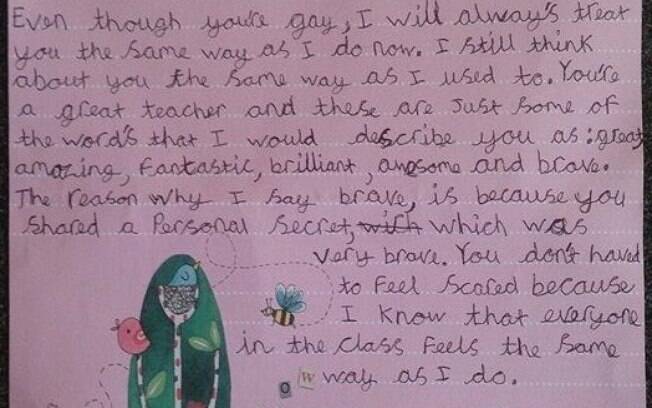 Even though you're gay, I will alway's treat
you the same way as I do now. I still think
about you the same way as I used to. You're
a great teacher and these are just some of
the word's that I would describe you as: great
amazing, fantastic, brilliant, awesome and brave.
The reason why I say brave, is because you
shared a Personal secret, with which was
very brave. You don't haved
to feel scared because
I know that everyone
in the class feels the same
way as I do.